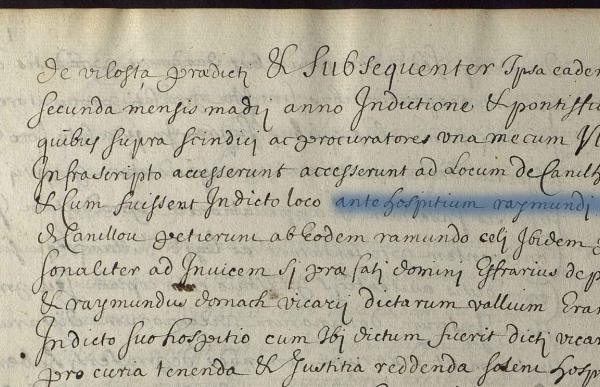 de vilosta prædicti & subsequenter Ipsa eadem
secunda mensis madij anno Indictione & pontific
quibus supra scindici ac procuratores vna mecum
Infrascripto accesserunt accesserunt ad Locum de Canill
& Cum fuissent Indicto loco ante hospitium raymundi
de Canillou petierunt ab Eodem ramundo celj Ibidem
sonaliter ad Invicem si præfati domini Effrarius de p
& raymundus domach vicarij dictarum vallium Eran
Indicto suo hospitio cum Ibi dictum fuerit dicti vicar
pro curia tenenda & Justitia reddenda solent hosp